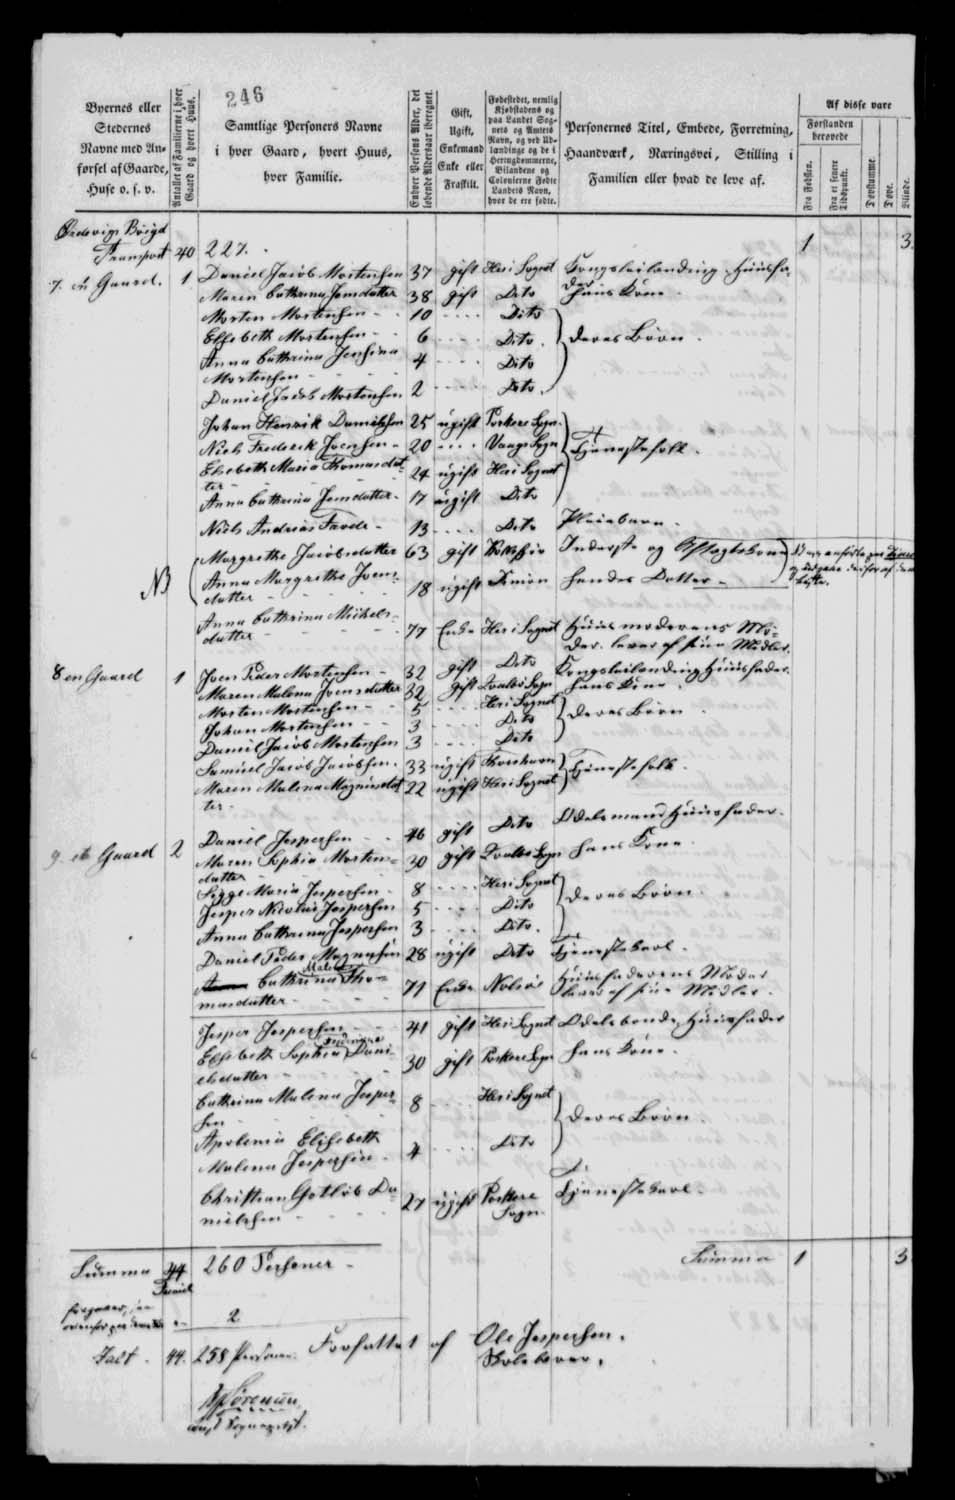 246
Byernes eller
Stedernes
Navne med An-
førsel af Gaarde,
Huse o. s. v.
Antallet af Familierne i hver
Gaard og hvert Huus.
Samtlige Personers Navne
i hver Gaard, hvert Huus,
hver Familie.
Enhver Persons Alder, det
løbende Aldersaar iberegnet.
Gift,
Ugift,
Enkemand
Enke eller
Fraskilt.
Fødestedet, nemlig
Kjøbstadens og
paa Landet Sog-
nets og Amtets
Navn, og ved Ud-
landinge og de i
Hertugdømmerne,
Bilandene og
Colonierne Fødte
Landets Navn,
hvor de ere fødte.
Personernes Titel, Embede, Forretning,
Haandværk, Næringsvei, Stilling i
Familien eller hvad de leve af.
Af disse vare
Forstanden
berovede
Fra Fødslen.
Fra et senere
Tidspunkt.
Døvstumme.
Døve.
Blinde.
Ørdevigs Böigd
Transport 40 227. 1 3.
7. en Gaard. 1 Daniel Jacob Mortensen 37 gift Hersi Sognet Kongsleilending, Huusfader
Maren Cathrina Joensdatter 38 gift Dito hans Kone.
Morten Mortensen 10 Dito
Elsebeth Mortensen 6 Dito. deres Børn.
Anna Cathrina Josefina 4 Dito
Mortensen
Daniel Jacob Mortensen 2 Dito.
Johan Henrik Danielsen 25 ugift Porkere Sogn.
Niels Frederik Joensen 20 Vaags Sogn Tjenestefolk.
Elsebeth Maria Thomasdat- 24 ugift Hersi Sognet
ter
Anna Cathrina Joensdatter 17 ugift Dito
Niels Andreas 13 Dito Pleiebarn.
NB
Margrethe Jacobsdatter 63 gift Inderste og Aftægtskone
Anna Margrethe Joens- 18 ugift hendes Datter
datter
Anna Cathrina Mickels- 77 Enke Hersi Sognet Huusmoderens Mo-
datter der, lever af sine Midler.
8 en Gaard 1 Joen Peder Mortensen 32 gift Dito Kongsleilending, Huusfader.
Maren Malena Joensdatter 32 gift hans Kone.
Morten Mortensen 5 Hersi Sognet
Johan Mortensen 3 Dito deres Børn
Daniel Jacob Mortensen 3 Dito
Samuel Jacob Jacobsen 33 ugift Thorshavn Tjenestefolk.
Maren Malena Magnusdat- 22 ugift Hersi Sognet
ter
9 en Gaard 2 Daniel Jespersen 46 gift Dito Odelsmand, Huusfader.
Maren Sophia Mortens- 30 gift hans Kone
datter
Sigge Maria Jespersen 8 Hersi Sognet
Jesper Nicolai Jespersen 5 Dito deres Børn
Anna Cathrina Jespersen 3 Dito.
Daniel Peder Magnussen 28 ugift Dito Tjenestekarl.
Cathrina Malena Tho- 71 Enke Nolsöe Huusfaderens Moder
masdatter lever af sine Midler.
Jesper Jespersen 41 gift Hersi Sognet Odelsbonde, Huusfader
Elsebeth Sophia Dani- 30 gift Porkere Sogn hans Kone.
elsdatter
Cathrina Malena Jesper- 8 Hersi Sognet
sen deres Børn
Apolonia Elisebeth 4 Dito
Malena Jespersen
Christian Gotlob Da- 27 ugift Porkere Tjenestekarl.
nielsen Sogn.
Summa 44 260 Personer Summa 1 3
2
Ialt 44. 258 Personer. Forfattet af Ole Jespersen.
Skolelærer.
Sörensen